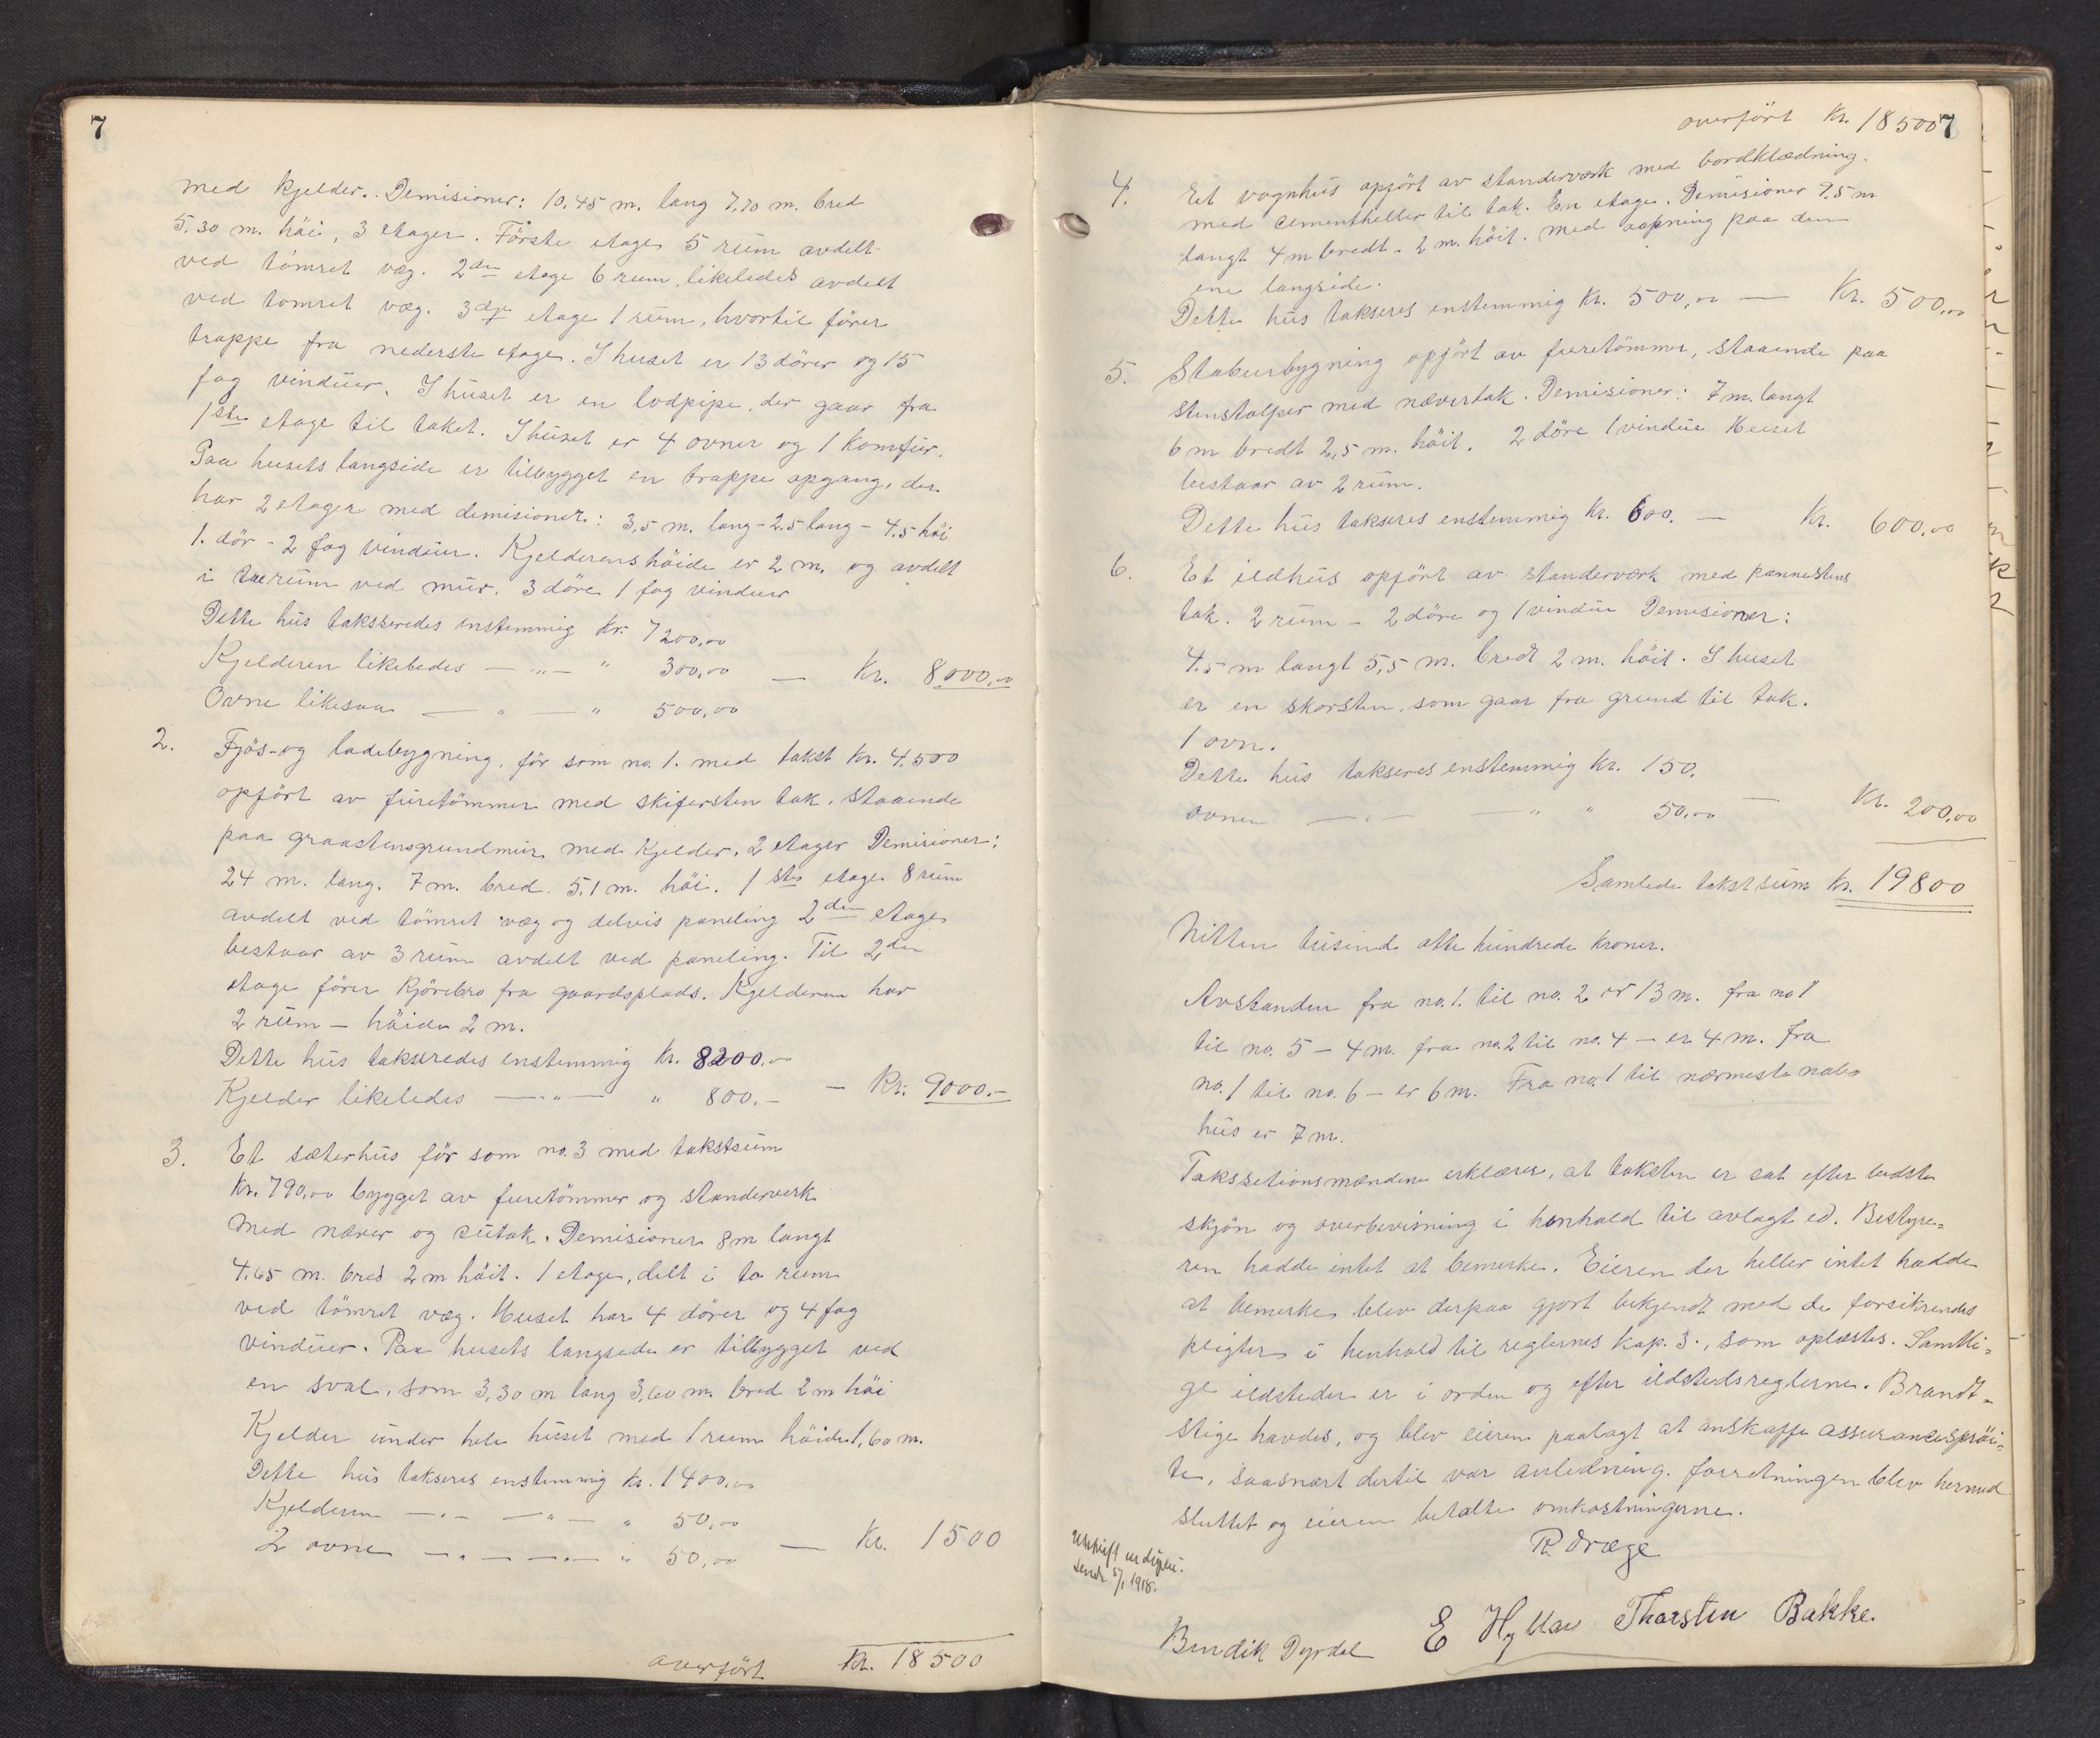 7
med kjelder. Demisioner: 10.45 m. lang 7,70 m. bred
5.30 m. höi, 3 etager. Förste etage 5 rum avdelt
ved tömret væg. 2den etage 6 rum, likeledes avdelt
ved tömret væg. 3dje etage 1 rum, hvortil förer
trappe fra nederste etage. I huset er 13 dörer og 15
fag vinduer. I huset er en lodpipe, der gaar fra
1ste etage til taket. I huset er 4 ovner og 1 komfur.
Paa husets langside er tilbygget en trappe opgang, der
har 2 etager med demisioner: 3,5 m. lang - 2.5 lang - 4.5 höi
1. dör - 2 fag vinduer. Kjelderens höide er 2 m. og avdelt
i to rum ved mur. 3 döre 1 fag vinduer
Dette hus taksseredes enstemmig Kr: 7200,00
Kjelderen likeledes — „ — " 300,00 — Kr. 8000,00
Ovne likesaa — " — " 500,00
2. Fjös- og ladebygning, för som no. 1. med takst Kr. 4.500
opfört av furetömmer med skifersten tak, staaende
paa graastensgrundmur, med Kjelder, 2 etager Demisioner:
24 m. lang. 7 m. bred. 5.1 m. höi. 1ste etage 8 rum
avdelt ved tömret væg og delvis paneling 2den etage
bestaar av 3 rum avdelt ved paneling. Til 2den
etage förer Kjörebro fra gaardsplads. Kjelderen har
2 rum — höide 2 m.
Dette hus takseredes enstemmig Kr. 8200.00
Kjelder likeledes — " — " 800.- — Kr: 9000.-
3. Et sæterhus för som no. 3 med takstsum
Kr. 790,00 bygget av furetömmer og standerverk
med næver og sutak. Demisioner 8 m langt
4.65 m. bred 2 m höit. 1 etage, delt i to rum
ved tömret væg. Huset har 4 dörer og 4 fag
vinduer. Paa husets langside er tilbygget ved
en sval, som 3,30 m lang 3,60 m. bred 2 m höi
Kjelder under hele huset med 1 rum höide 1,60 m.
Dette hus takseres enstemmig Kr. 1400,00
Kjelderen — „ — — " — " 50,00
2 ovne — „ — — „ — " 50,00 — Kr. 1500
overfört Kr. 18500
overfört Kr. 18500 7
4. Et vognhus opfört av standerværk med bordklædning.
med cementheller til tak. En etage. Demisioner 9.5 m
langt 4 m bredt - 2 m. höit. med aapning paa den
ene langside.
Dette hus takseres enstemmig Kr. 500,00 — Kr. 500,00
5. Staburbygning opfört av furetömmer, staaende paa
stenstolper med nævertak. Demisioner: 7 m. langt
6 m bredt 2,5 m. höit. 2 döre 1 vindue Huset
bestaar av 2 rum.
Dette hus takseres enstemmig Kr. 600. — Kr. 600,00
6. Et ildhus opfört av standerværk med pannestens
tak. 2 rum - 2 döre og 1 vindue Demisioner:
4.5 m langt 5,5 m. bredt 2 m. höit. I huset
er en skorsten, som gaar fra grund til tak.
1 ovn.
Dette hus takseres enstemmig Kr. 150.
ovnen — „ — — " " 50,00 — Kr. 200,00
Samlede takstsum Kr. 19800
Nitten tusind otte hundrede kroner.
Avstanden fra no. 1. til no. 2 er 13 m. fra no 1
til no. 5 - 4 m. fra no. 2 til no. 4 - er 4 m. fra
no. 1 til no. 6 - er 6 m. Fra no. 1 til nærmeste nabo
hus er 7 m.
Takssetionsmændene erklærer, at taksten er sat efter bedste
skjön og overbevisning i henhold til avlagt ed. Bestyre=
ren hadde intet at bemerke. Eieren der heller intet hadde
at bemerke blev derpaa gjort bekjendt med de forsikrendes
pligter i henhold til reglernes kap. 3., som oplæstes. Samtli=
ge ildsteder er i orden og efter ildstedsreglerne. Brandt=
stige havdes, og blev eieren paalagt at anskaffe assurancespröi=
te, saasnart dertil var anledning. Forretningen blev hermed
sluttet og eieren betalte omkostningerne.
R Dræge
Utskrift
sendt 5/1 1918.
Bendik Dyrdal E Hyllar Thorsten Bakke.